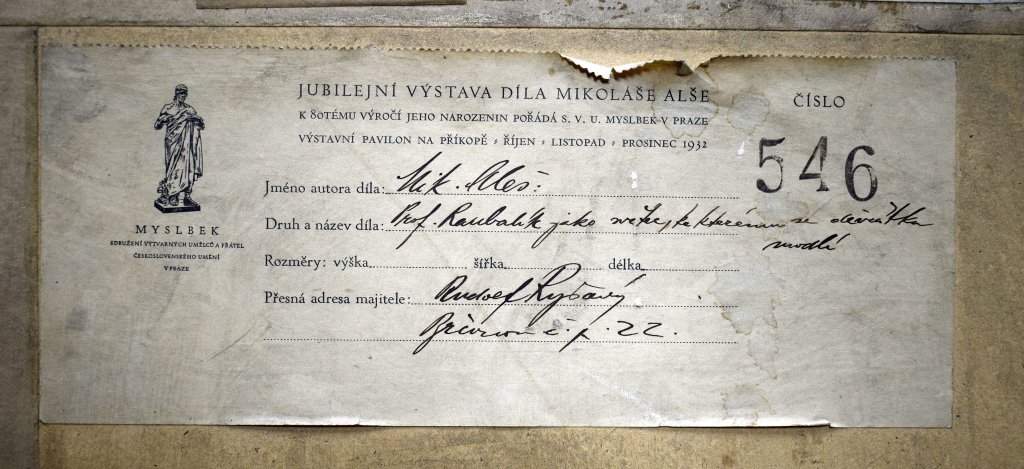 JUBILEJNÍ VÝSTAVA DÍLA MIKOLÁŠE ALŠE
K 80TÉMU VÝROČÍ JEHO NAROZENIN POŘÁDÁ S. V. U. MYSLBEK V PRAZE
VÝSTAVNÍ PAVILON NA PŘÍKOPĚ ⸗ ŘÍJEN ⸗ LISTOPAD ⸗ PROSINEC 1932
ČÍSLO
546
MYSLBEK
SDRUŽENÍ VÝTVARNÝCH UMĚLCŮ A PŘÁTEL
ČESKOSLOVENSKÉHO UMĚNÍ
V PRAZE
Jméno autora díla: Mik. Aleš:
Druh a název díla: Prof. Raubalík jako ke kterému se děvčátka
modlí
Rozměry: výška šířka délka
Přesná adresa majitele: Rudolf Ryšavý
Břevnov č. p. 22.